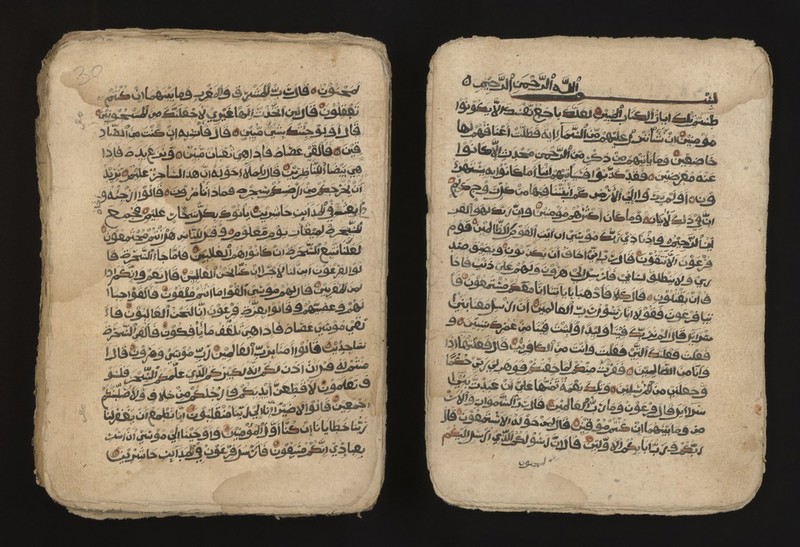 بسم الله الرحمن الرحيم
طسم تلك ايات الكتاب المبين لعلك باخع نفسك الا يكونوا
مومنين ان نشأ ننزل عليهم من السماء اية فظلت اعناقهم لها
خاضعين وما ياتيهم من ذكر من الرحمن محدث الا كانوا
عنه معرضين فقد كذبوا فسياتيهم انبؤا ما كانوا به يستهزء
ون اولم يروا الى الارض كم انبتنا فيها من كل زوج كريم
ان في ذلك لاية وما كان اكثرهم مومنين وان ربك لهو العز
يز الرحيم واذ نادى ربك موسى ان ايت القوم الظالمين قوم
فرعون الا يتقون قال رب اني اخاف ان يكذبون ويضيق صد
ري ولا ينطلق لساني فارسل الى هرون ولهم علي ذنب فاخا
ف ان يقتلون قال كلا فاذهبا باياتنا انا معكم مستمعون فا
تيا فرعون فقولا انا رسول رب العالمين ان ارسل معنا بني
اسرايل قال الم نربك فينا وليدا ولبثت فينا من عمرك سنين و
فعلت فعلتك التي فعلت وانت من الكافرين قال فعلتها اذا
وانا من الضالين ففررت منكم لما خفتكم فوهب لي ربي حكما
وجعلني من المرسلين وتلك نعمة تمنها علي ان عبدت بني ا
سرايل قال فرعون وما رب العالمين قال رب السموات والار
ض وما بينهما ان كنتم موقنين قال لمن حوله الا تستمعون قال
ربكم ورب ابايكم الاولين قال ان رسولكم الذي ارسل اليكم
لمجنون
30
لمجنون قال رب المشرق والمغرب وما بينهما ان كنتم
تعقلون قال لين اتخذت الها غيري لاجعلنك من المسجونين
قال اولو جيتك بشيء مبين قال فات به ان كنت من الصاد
قين فالقى عصاه فاذا هي ثعبان مبين ونزع يده فاذا
هي بيضاء للناظرين قال للملا حوله ان هذا لساحر عليم يريد
ان يخرجكم من ارضكم بسحره فماذا تامرون قالوا ارجه و
اخاه وابعث في المداين حاشرين ياتوك بكل سحار عليم فجمع
السحرة لميقات يوم معلوم وقيل للناس هل انتم مجتمعون
لعلنا نتبع السحرة ان كانوا هم الغالبين فلما جاء السحرة قا
لوا لفرعون اين لنا لاجرا ان كنا نحن الغالبين قال نعم وانكم اذا
لمن المقربين قال لهم موسى القوا ما انتم ملقون فالقوا حبا
لهم وعصيهم وقالوا بعزة فرعون انا لنحن الغالبون فا
لقى موسى عصاه فاذا هي تلقف ما يافكون فالقي السحرة
ساجدين قالوا امنا برب العالمين رب موسى وهرون قال ا
منتم له قبل ان اذن لكم انه لكبيركم الذي علمكم السحر فلسو
ف تعلمون لاقطعن ايديكم وارجلكم من خلاف ولاصلبنكم
اجمعين قالوا لا ضير انا الى ربنا منقلبون انا نطمع ان يغفر لنا
ربنا خطايانا ان كنا اول المومنين واوحينا الى موسى ان اسر
بعبادي انكم متبعون فارسل فرعون في المداين حاشرين